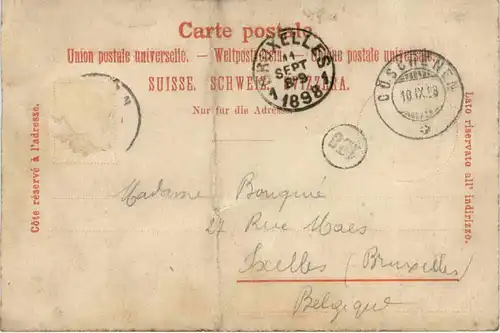 Carte postale.
Union postale universelle. — Weltpostverein. — Unione postale universale.
SUISSE. SCHWEIZ. SVIZZERA.
Nur für die Adresse.
Côte réservé à l'adresse.
Lato riservato all' indirizzo.
BRUXELLES 1
11
SEPT
8-9
1898
GÖSCHENEN
10.IX.98
Madame Bouquié
27 Rue Maes
Ixelles (Bruxelles)
Belgique